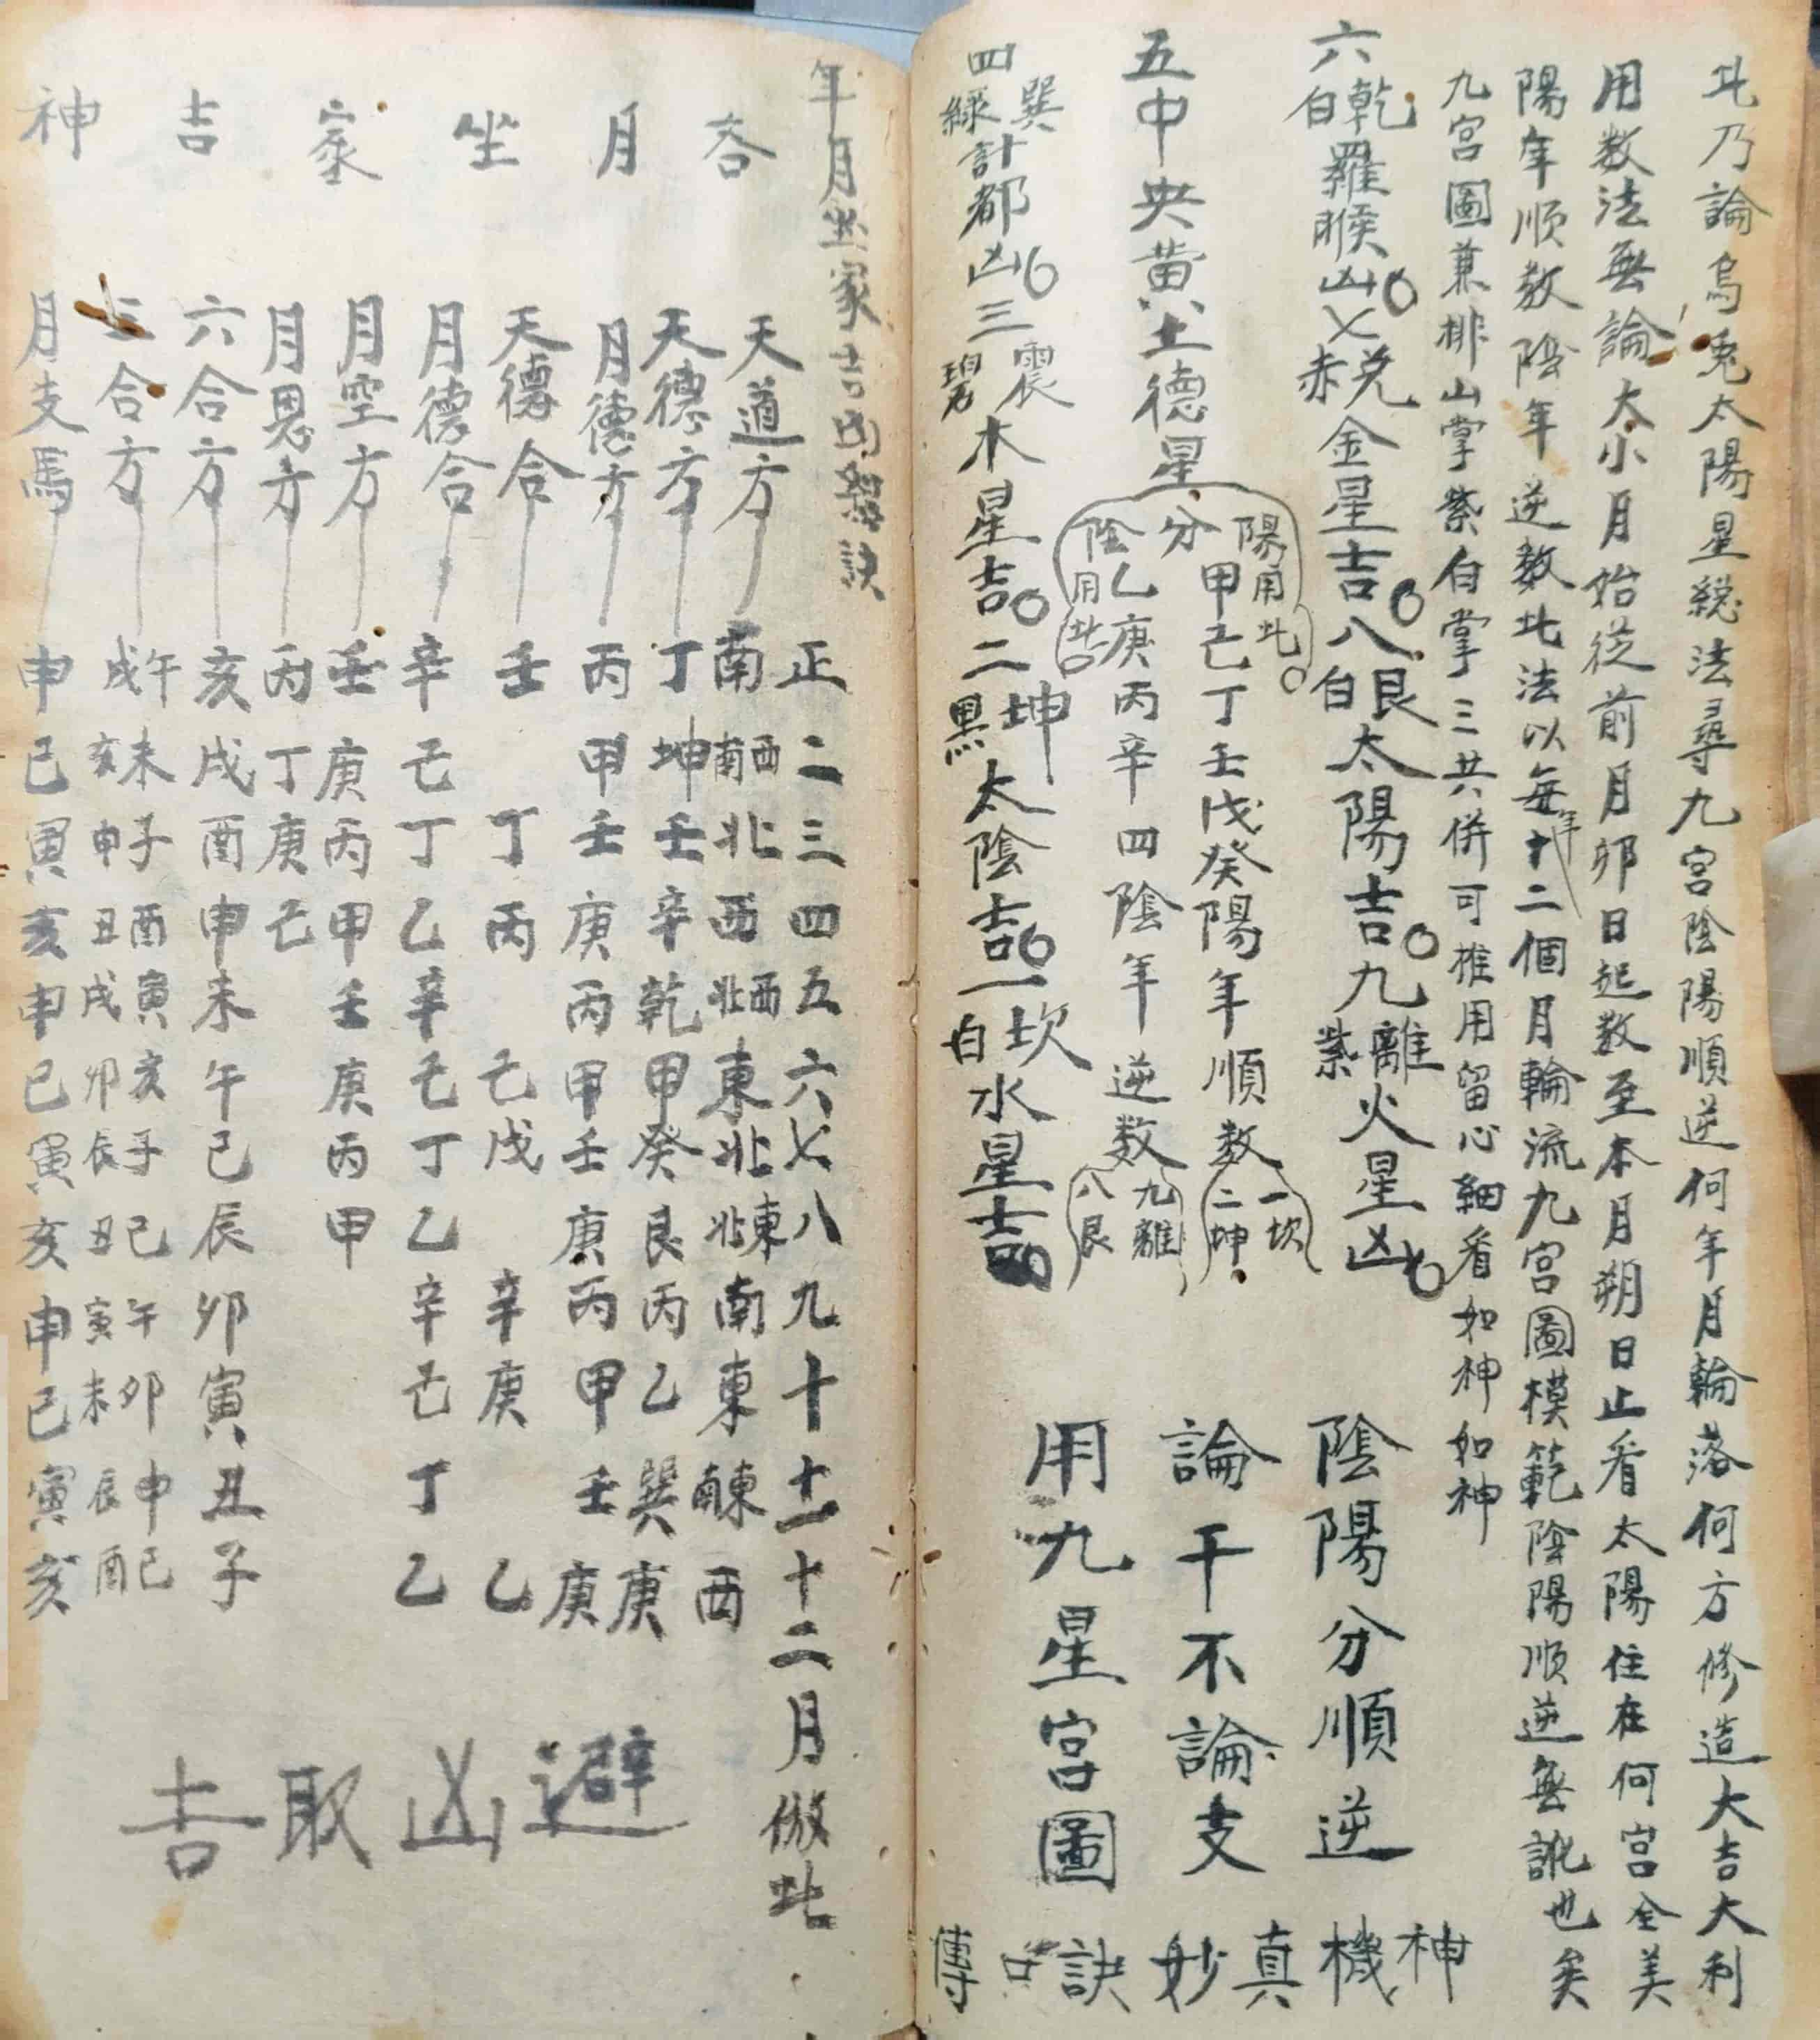 此乃論烏兎太陽星総法尋九宮陰陽順逆何年月輪落何方修造大吉大利
用数法無論大小月始從前月卯日起数至本月朔日止看太陽住在何宮全美
陽年順数陰年逆数此法以每年十二個月輪流九宮圖模範陰陽順逆無訛也矣
九宮圖兼排山掌紫白掌三共併可推用留心細看如神如神
六乾白羅睺凶七兌赤金星吉八艮白太陽吉九離紫火星凶
五中央黄土德星
陽用此 分 陰用此
甲己丁壬戊癸陽年順数 一坎 二坤
乙庚丙辛四陰年逆数 九離 八艮
四巽綠計都凶三震碧木星吉二坤黑太陰吉一坎白水星吉
陰陽分順逆
論干不論支
用九星宮圖
神機真妙訣口傳
年月坐家吉凶總訣
各月坐家吉神
正二三四五六七八九十十一十二月倣此
天道方 南 西南 北 西 西北 東 北 東北 南 東 東南 西
天德方 丁坤壬辛乾甲癸艮丙乙巽庚
月德方 丙甲壬庚丙甲壬庚丙甲壬庚
天德合 壬 丁丙 己戊 辛庚 乙
月德合 辛己丁乙辛己丁乙辛己丁乙
月空方 壬庚丙甲壬庚丙甲
月恩方 丙丁庚己
六合方 亥戌酉申未午巳辰卯寅丑子
三合方 午戌 未亥 子申 酉丑 寅戌 亥卯 子辰 巳丑 午寅 卯未 申辰 巳酉
月支馬 申巳寅亥申巳寅亥申巳寅亥
避凶取吉